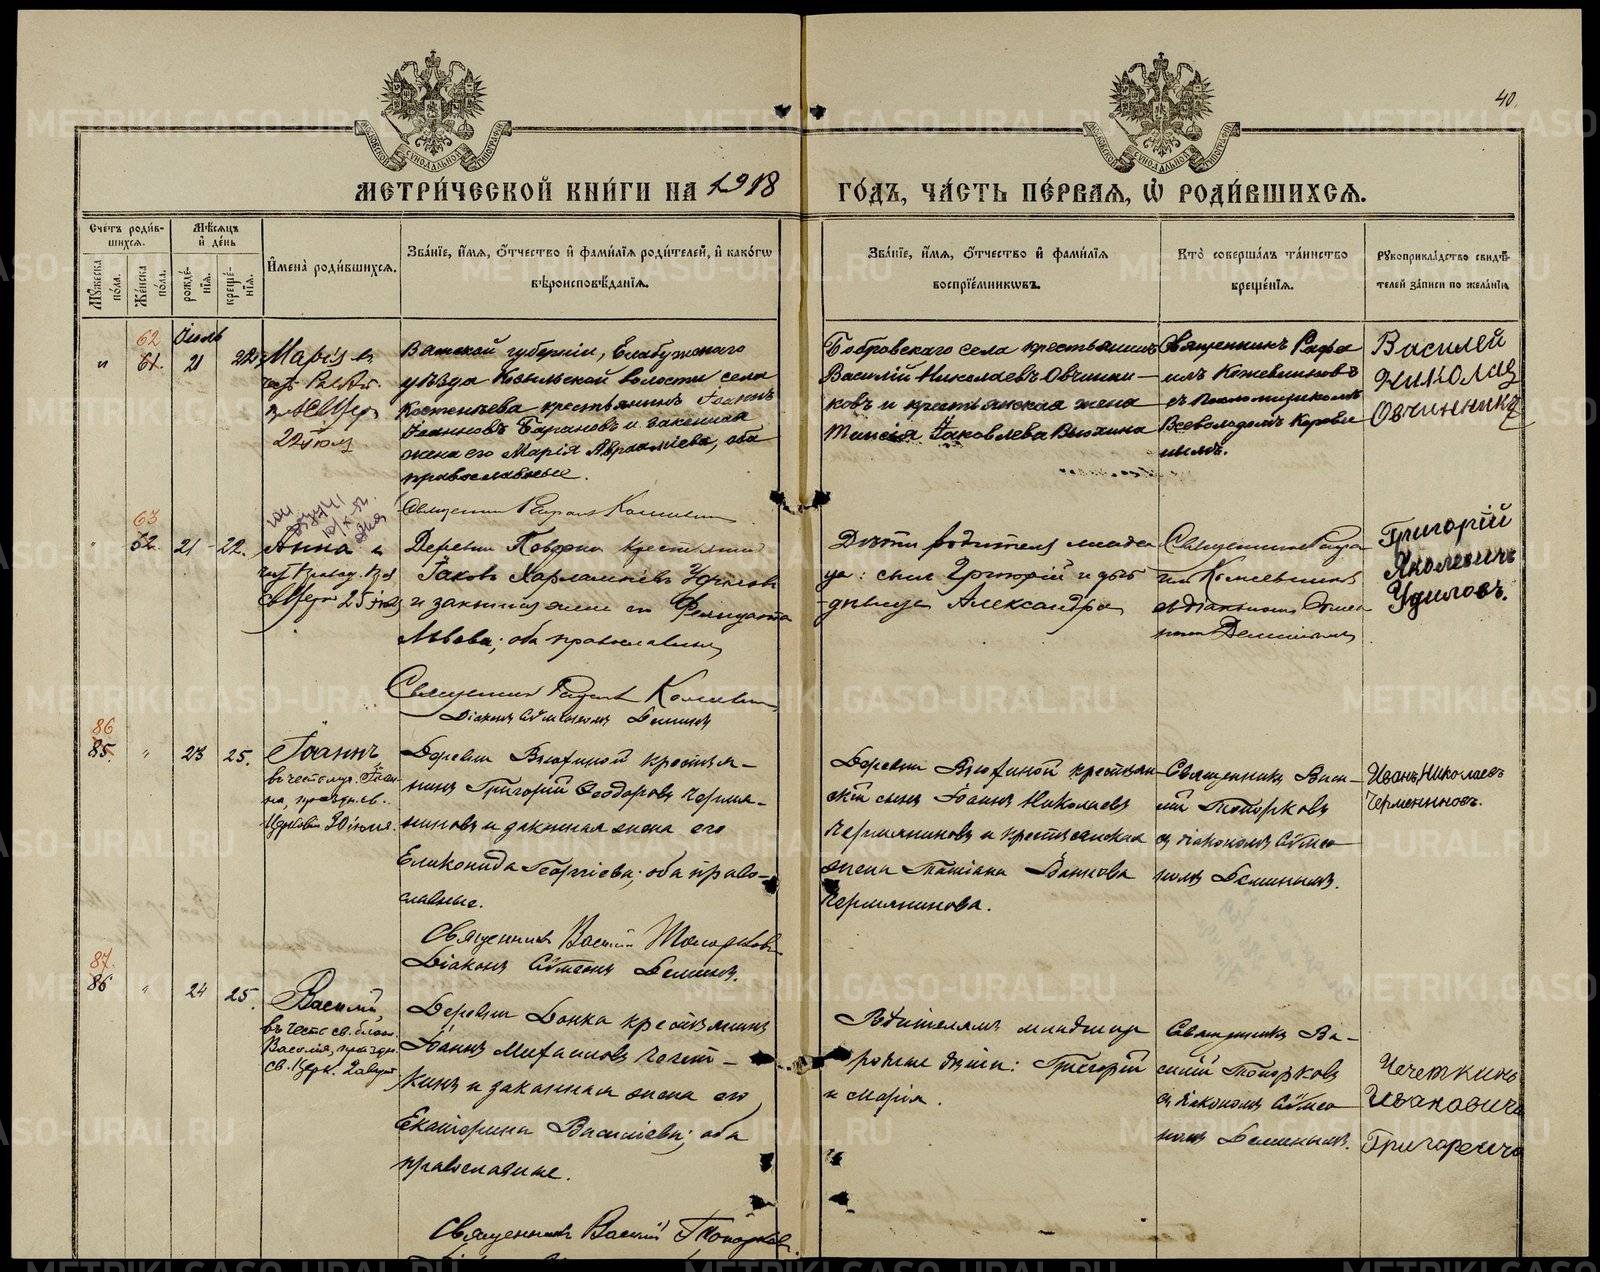 40.
МЕТРИ́ЧЕСКОЙ КНИ́ГИ НА 1918 ГО́ДЪ, ЧА́СТЬ ПЕ́РВАЯ, Ѡ҆ РОДИ́ВШИХСЯ.
Сче́тъ роди́в-
шихся.
Мѣ́сяцъ
и҆ де́нь
Мꙋ́жеска по́ла.
Же́нска по́ла.
рожде́-
нїя.
креще́-
нїя.
И҆мена̀ роди́вшихся.
Зва́нїе, и҆́мя, ѻ҆́тчество и҆ фами́лїя роди́телей, и҆ како́гѡ
вѣроисповѣ́данїя.
Зва́нїе, и҆́мя, ѻ҆́тчество и҆ фами́лїя
воспрїе́мникѡвъ.
Кто̀ соверша́лъ та́инство
креще́нїя.
Рꙋкоприкла́дство свидѣ́-
телей за́писи по жела́нїю
62
61.
Іюль
21
22
Марія
22 Іюля
Вятской губерніи, Елабужскаго
уѣзда Козыльской волости села
Костенѣева крестьянинъ Іоаннъ
Іоанновъ Барановъ и законная
жена его Марія Авраамiева, оба
православные.
Бобровскаго села крестьянинъ
Василій Николаевъ Овчинни-
ковъ и крестьянская жена
Таисія Іаковлева Вьюхина
Священникъ Рафа
илъ Кожевниковъ
съ псаломщикомъ
Всеволодомъ
Василей
Николае
Овчинникъ
63
62.
21
22.
Анна
25 іюля
Деревни крестьянинъ
Іаковъ Харлампіевъ Удиловъ
и законная жена его
Львова; оба православные
Дѣти родителя младен
ца: сынъ Григорій и дѣв
Александра
Священникъ Рафа
илъ Кожевниковъ
съ діакономъ Сѵмео
номъ Деминымъ
Григорій
Яколевичь
Удиловъ.
Діаконъ Сѵмеонъ Деминъ
86
85.
23
25.
Іоаннъ
въ честь муч. Іоан-
на, праздн. св.
Церковію 30 іюля.
Деревни Вьюхиной крестья-
нинъ Григорій Ѳеодоровъ Чермя-
ниновъ и законная жена его
Еликонида Георгіева; оба право-
славные.
Священникъ Василій Топорковъ
Діаконъ Сѵмеонъ Деминъ.
Деревни Вьюхиной крестьян-
скій сынъ Іоаннъ Николаевъ
Чермяниновъ и крестьянская
жена Татіана
Чермянинова.
Священникъ Васи-
лій Топорковъ
съ діакономъ Сѵмео-
номъ Деминымъ.
Иванъ Николаевъ
Чермениновъ.
87.
86
24
25.
Василій,
въ честь св. блаж.
Василія, праздн.
св. Церк. 2 август
Деревни крестьянинъ
Іоаннъ Михаиловъ Чечет-
кинъ и законная жена его
Екатерина Василіева; оба
православные.
Священникъ Василій Топорков
Родителямъ младенца
родные дѣти: Григорій
и Марія.
Священникъ Ва-
силій Топорковъ
съ діакономъ Сѵмео-
номъ Деминымъ.
Чечеткинъ
Ивановичь
Григореичь
METRIKI.GASO-URAL.RU